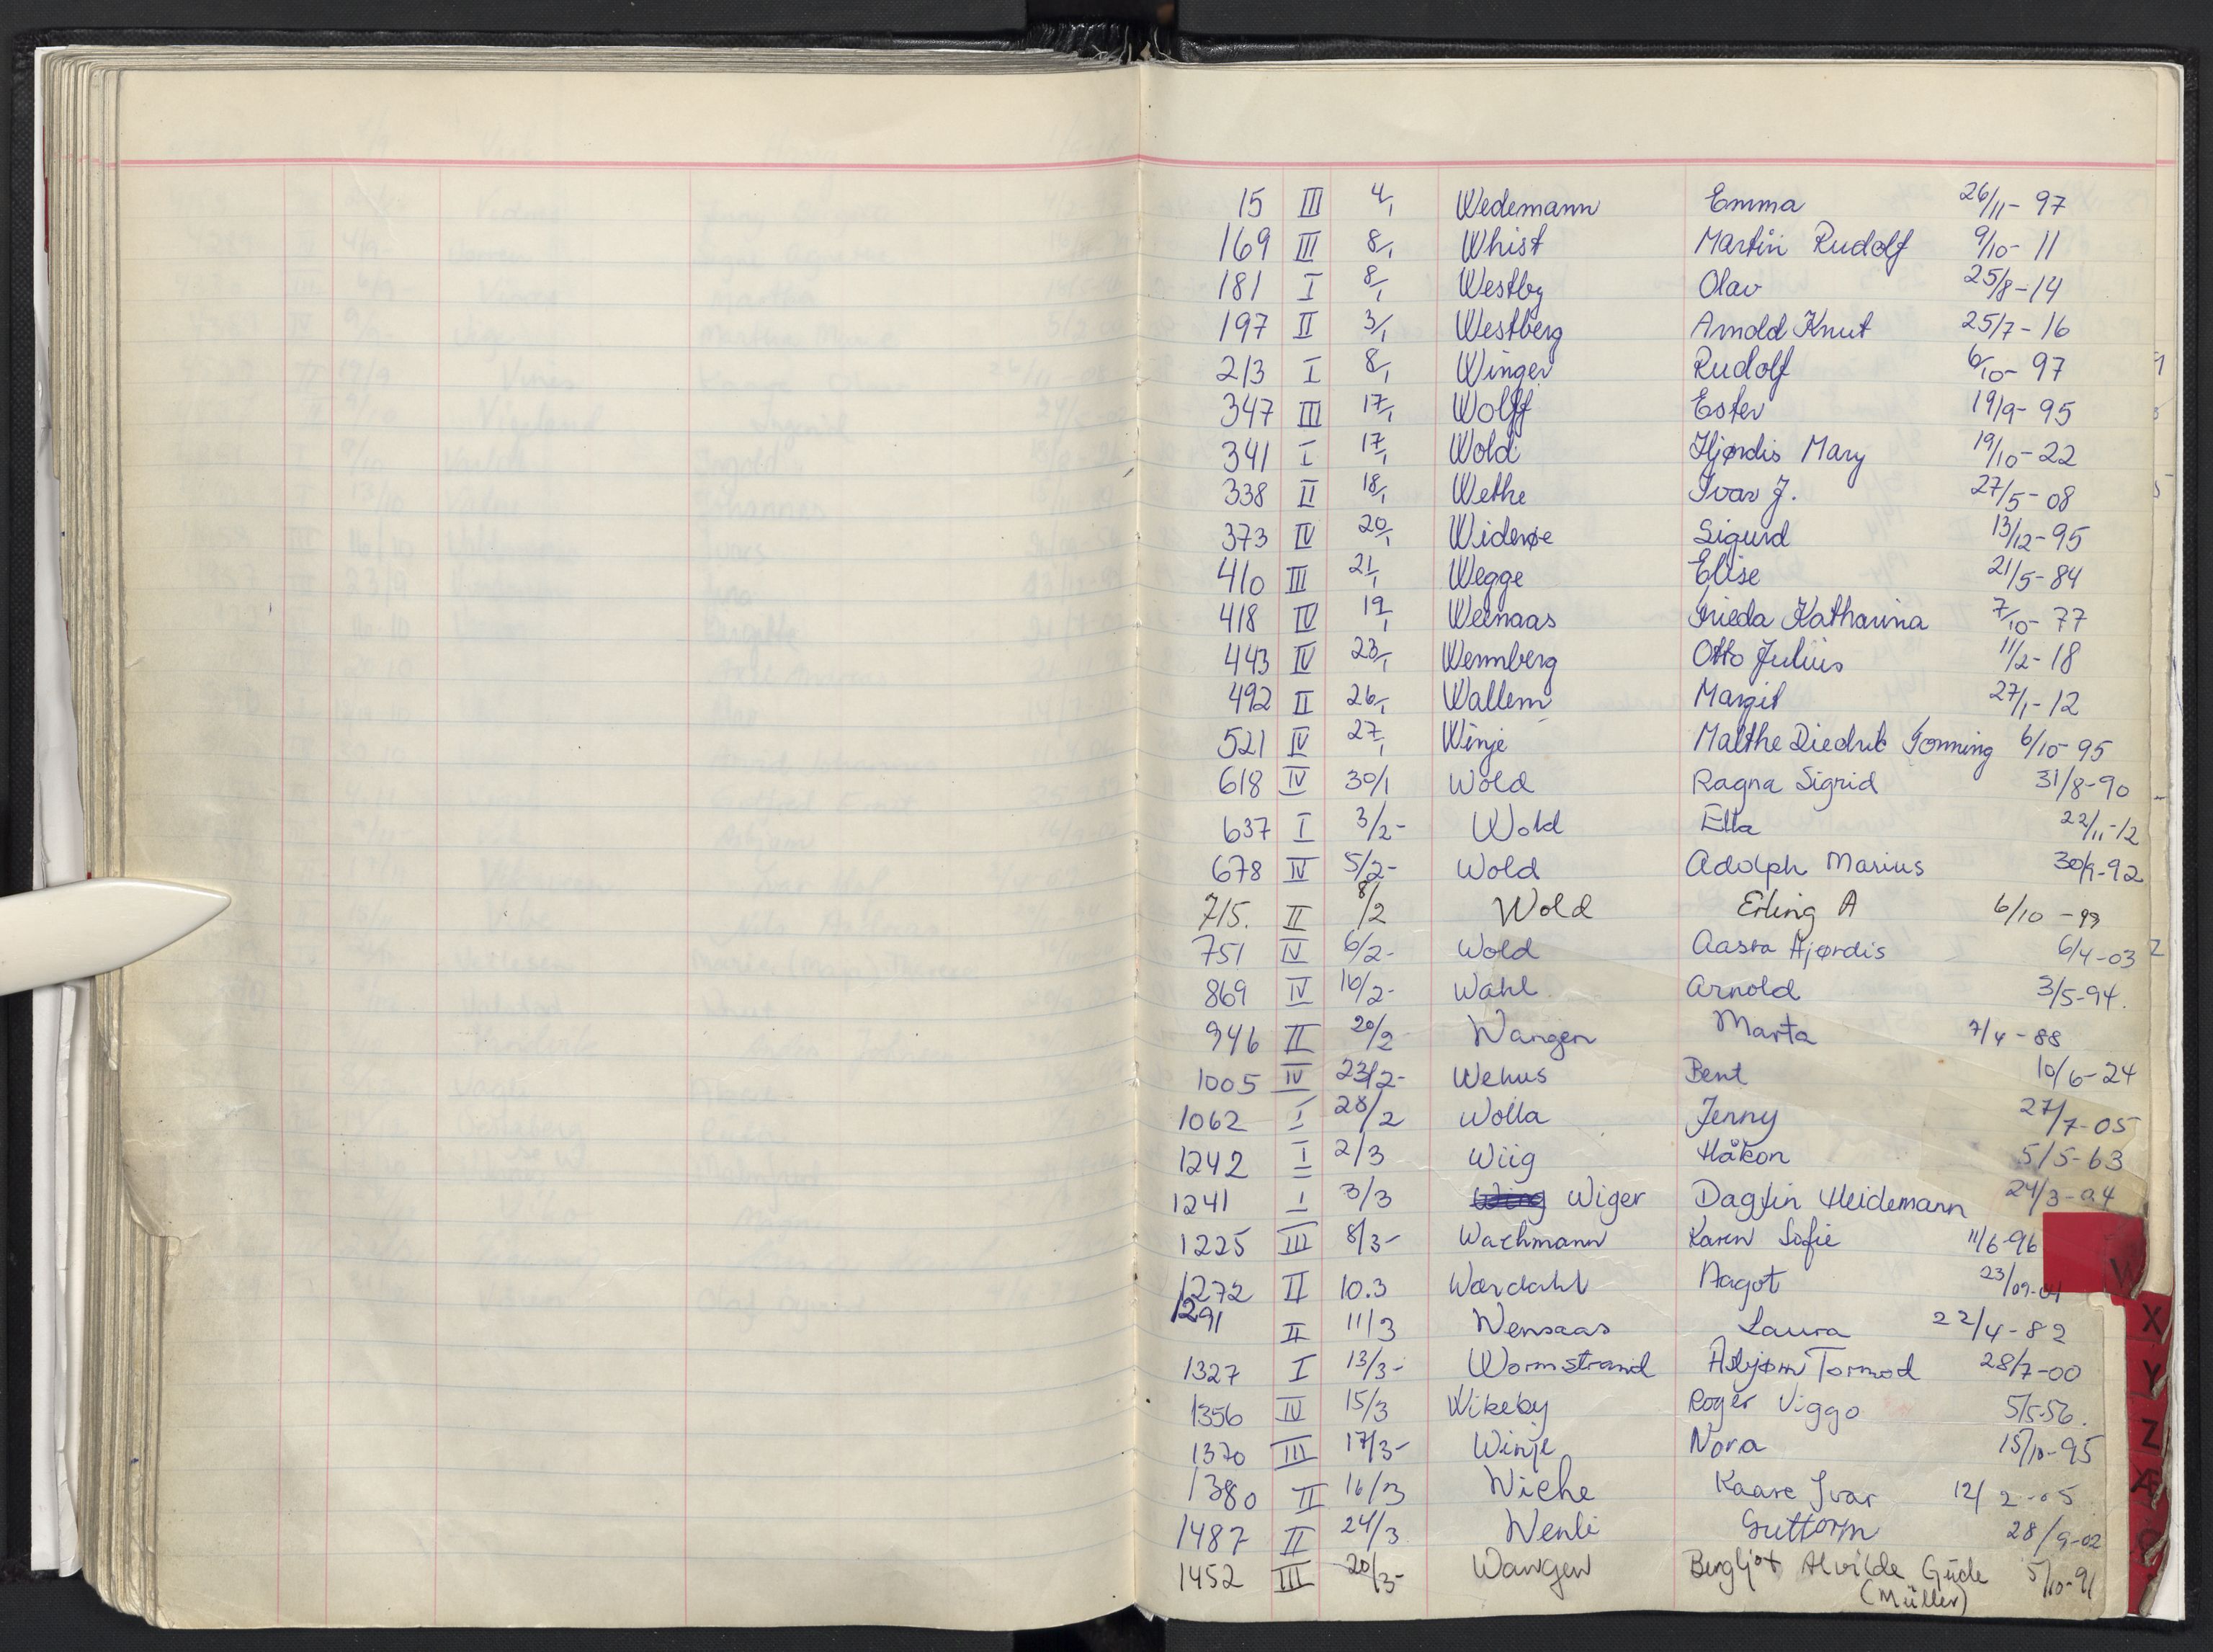 15 III 4/1 Wedemann Emma 26/11-97
169 III 8/1 Whist Martin Rudolf 9/10-11
181 I 8/1 Westby Olav 25/8-14
197 II 3/1 Westberg Arnold Knut 25/7-16
213 I 8/1 Winger Rudolf 6/10-97
347 III 17/1 Wolff Ester 19/9-95
341 I 17/1 Wold Hjørdis Mary 19/10-22
338 II 18/1 Wethe Ivar J. 27/5-08
373 IV 20/1 Widerøe Sigurd 13/12-95
410 III 21/1 Wegge Elise 21/5-84
418 IV 19/1 Frieda Katharina 7/10-77
443 IV 23/1 Wennberg Otto Julius 11/2-18
492 II 26/1 Wallem Margit 27/1-12
521 IV 27/1 Winje Malthe Diedrik Tonning 6/10-95
618 IV 30/1 Wold Ragna Sigrid 31/8-90
637 I 3/2- Wold Ella 22/11-12
678 IV 5/2- Wold Adolph Marius 30/9-92
715. II 8/2 Wold Erling A 6/10-93
751 IV 6/2- Wold Aasta Hjørdis 6/4-03
869 IV 16/2- Wahl Arnold 3/5-94.
946 II 20/2 Wangen Marta 7/4-88
1005 IV 23/2- Wehus Bent 10/6-24
1062 I 28/2 Wolla Jenny 27/7-05
1242 I 2/3 Wiig Håkon 5/5-63
1241 I 3/3 Wiger Dagfin Heidemann 24/3-04
1225 III 8/3- Wachmann Karen Sofie 11/6-96
W
1272 II 10.3 Wærdahl Aagot 23/09-01
1291 II 11/3 Wensaas Laura 22/4-82
X
1327 I 13/3- Wormstrand Asbjørn Tormod 28/7-00
Y
1356 IV 15/3 Wikeby Roger Viggo 5/5-56.
1370 III 17/3- Winje Nora 15/10-95
Z
1380 II 16/3 Wiche Kaare Ivar 12/2-05
Æ
1487 II 24/3 Wenli Guttorm 28/9-02
Ø
1452 III 20/3- Wangen Bergljot Alvilde Gude 5/10-91
(Müller)